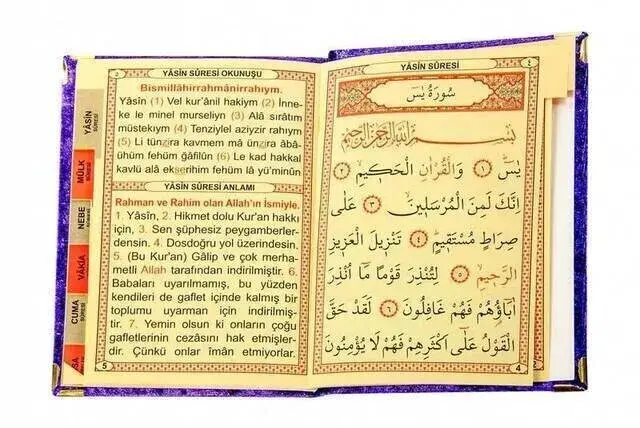 YÂSÎN SÛRESİ
٤
سُورَةُ يٰسٓ
بِسْمِ اللّٰهِ الرَّحْمٰنِ الرَّحِيمِ
يٰسٓ ﴿١﴾ وَالْقُرْاٰنِ الْحَكِيمِ ﴿٢﴾
اِنَّكَ لَمِنَ الْمُرْسَلِينَ ﴿٣﴾ عَلٰى
صِرَاطٍ مُسْتَقِيمٍ ﴿٤﴾ تَنْزِيلَ الْعَزِيزِ
الرَّحِيمِ ﴿٥﴾ لِتُنْذِرَ قَوْمًا مَٓا اُنْذِرَ
اٰبَٓاؤُ۬هُمْ فَهُمْ غَافِلُونَ ﴿٦﴾ لَقَدْ حَقَّ
الْقَوْلُ عَلٰٓى اَكْثَرِهِمْ فَهُمْ لَا يُؤْمِنُونَ
4
٥
YÂSİN SÛRESİ OKUNUŞU
Bismillâhirrahmânirrahıym.
Yâsîn (1) Vel kur'ânil hakiym (2) İnne-
ke le minel murseliyn (3) Alâ sırâtım
müstekıym (4) Tenziylel aziyzir rahıym
(5) Li tünzira kavmem mâ ünzira âbâ-
ühüm fehüm gâfilûn (6) Le kad hakkal
kavlü alâ ekserihim fehüm lâ yü'minûn
YÂSİN SÛRESİ ANLAMI
Rahman ve Rahim olan Allah'ın İsmiyle.
1. Yâsîn, 2. Hikmet dolu Kur'an hakkı
için, 3. Sen şüphesiz peygamberler-
densin. 4. Dosdoğru yol üzerindesin.
5. (Bu Kur'an) Gâlip ve çok merha-
metli Allah tarafından indirilmiştir. 6.
Babaları uyarılmamış, bu yüzden
kendileri de gaflet içinde kalmış bir
toplumu uyarman için indirilmiş-
tir. 7. Yemin olsun ki onların çoğu
gafletlerinin cezasını hak etmişler-
dir. Çünkü onlar îman etmiyorlar.
5
YÂSİN
SÛRESİ
MÜLK
SÛRESİ
NEBE
SÛRESİ
VÂKIA
SÛRESİ
CUMA
SÛRESİ